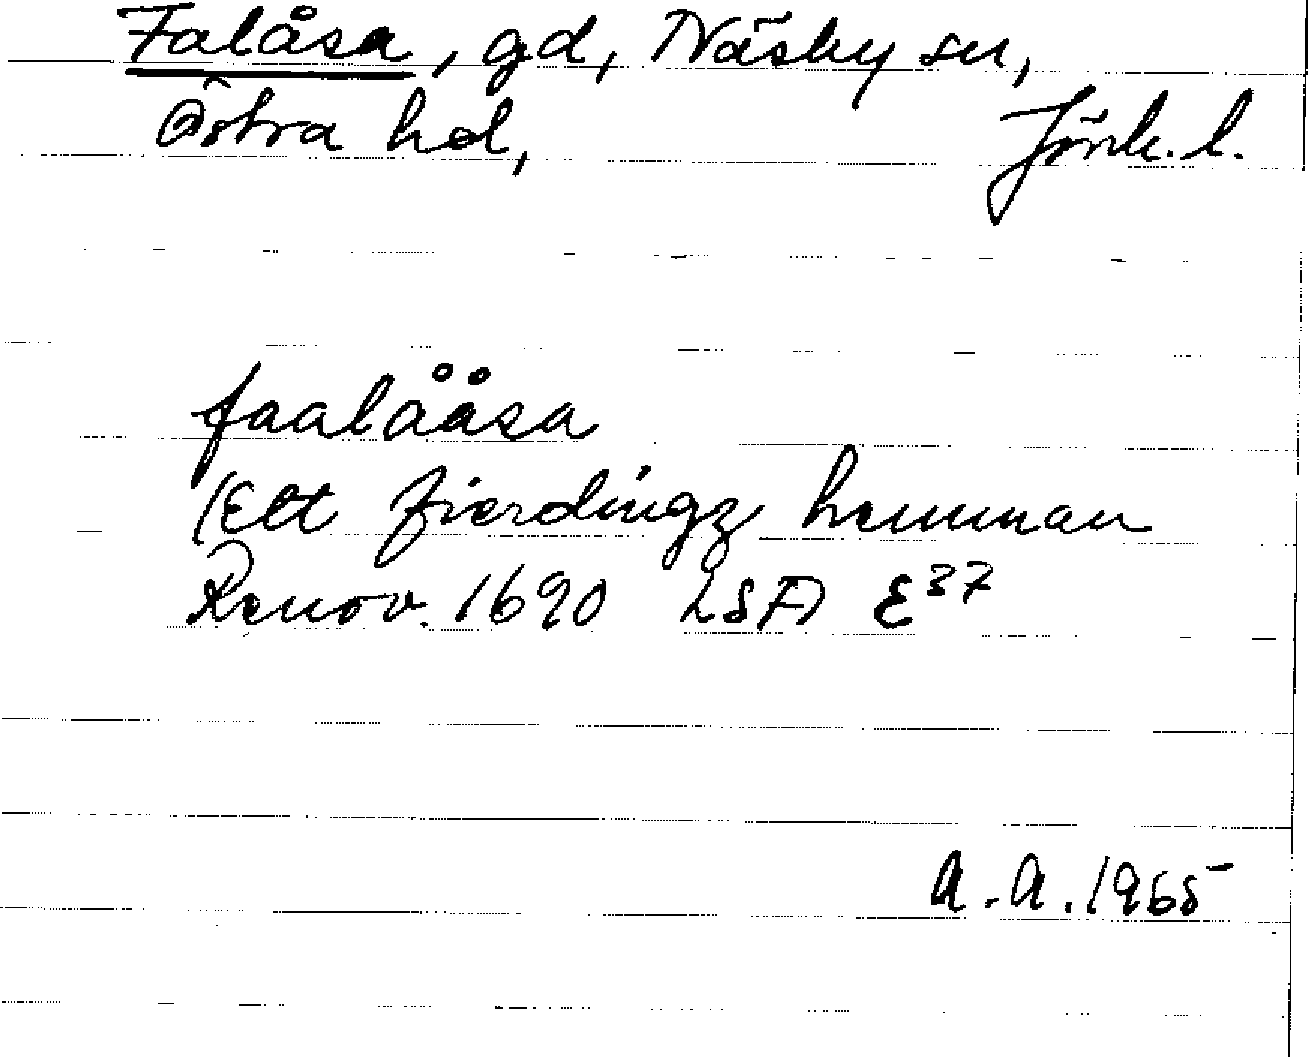 Falåsa, gd, Näsby sn,
Östra hd, Jönk. l.
faalååsa
(Ett fierdingz hemman
Renov. 1690 LSA E³⁷
A.A. 1965